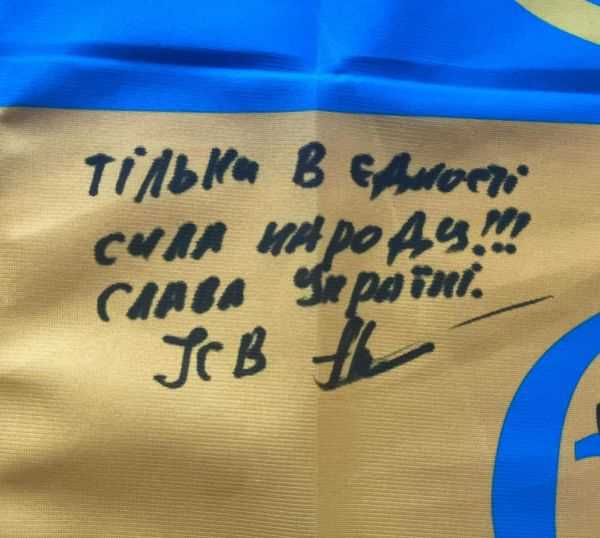 тільки в єдності
сила народу!!!
слава Україні.
JCB